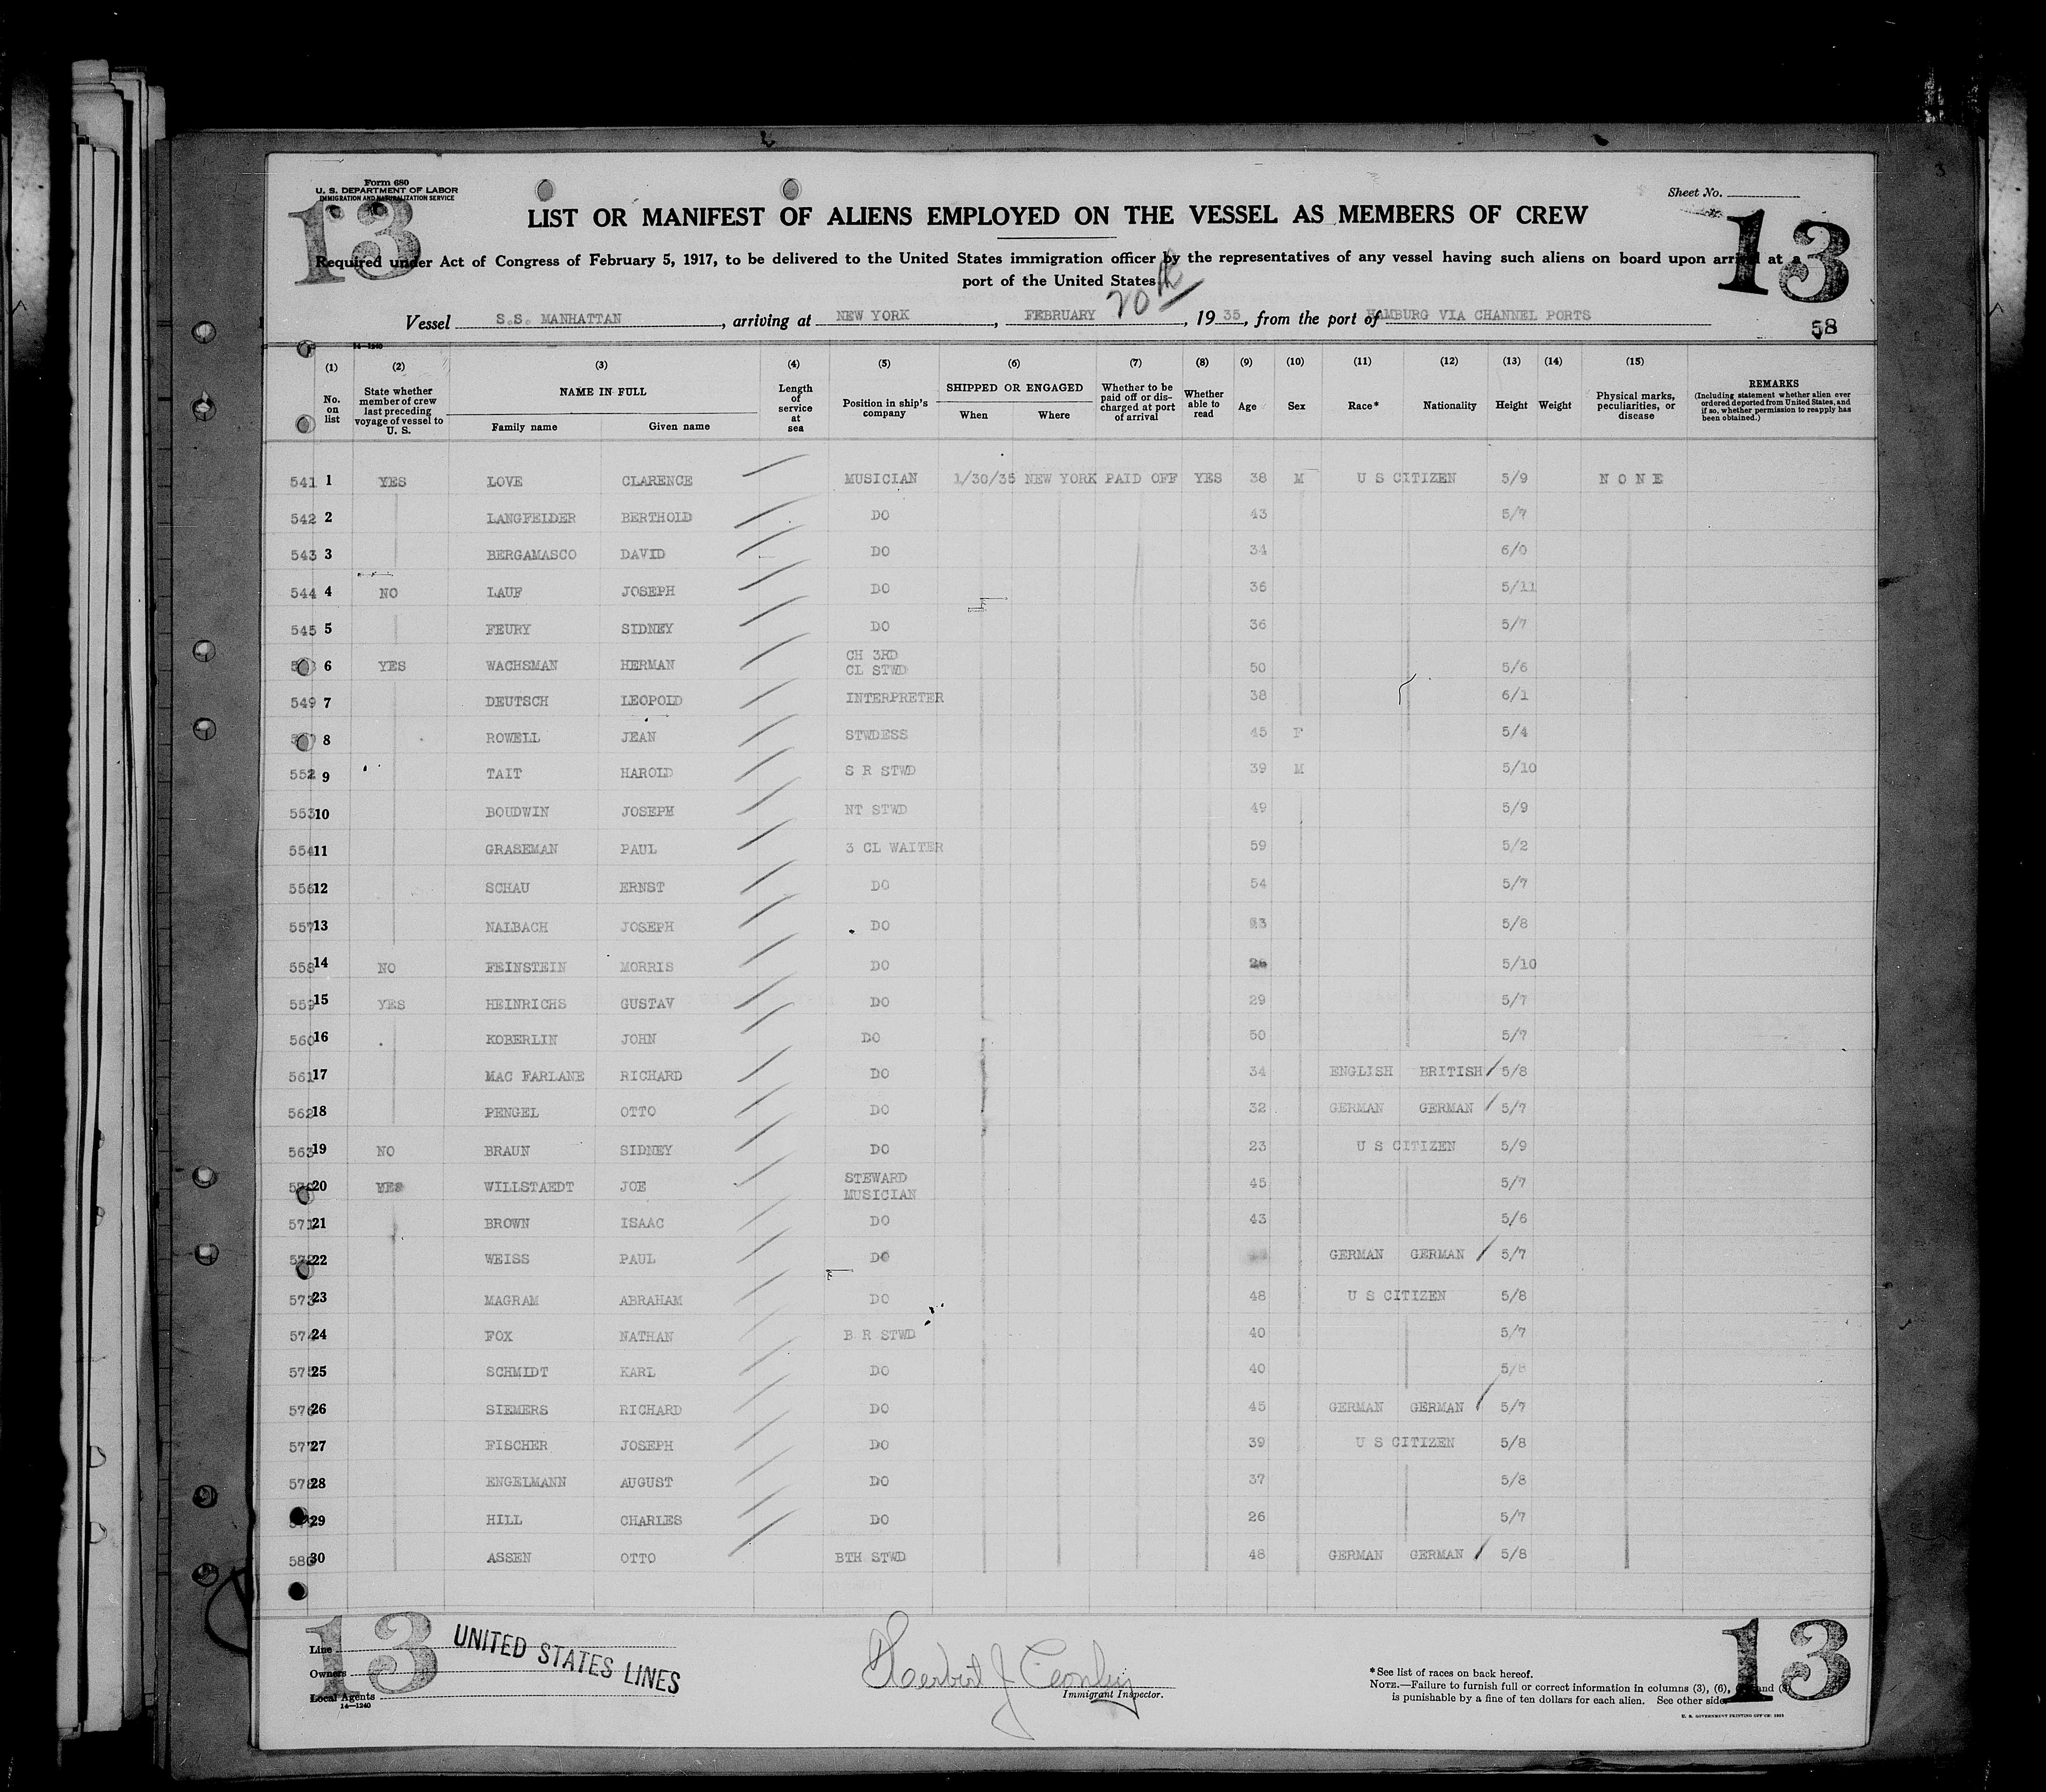 Form 680
U. S. DEPARTMENT OF LABOR
IMMIGRATION AND NATURALIZATION SERVICE
13
Sheet No.
13
LIST OR MANIFEST OF ALIENS EMPLOYED ON THE VESSEL AS MEMBERS OF CREW
Required under Act of Congress of February 5, 1917, to be delivered to the United States immigration officer by the representatives of any vessel having such aliens on board upon arrival at a
port of the United States
20th
Vessel S.S. MANHATTAN, arriving at NEW YORK, FEBRUARY, 1935, from the port of HAMBURG VIA CHANNEL PORTS
58
14-1240
(1) (2) (3) (4) (5) (6) (7) (8) (9) (10) (11) (12) (13) (14) (15)
No. on list
State whether member of crew last preceding voyage of vessel to U. S.
NAME IN FULL
Family name Given name
Length of service at sea
Position in ship's company
SHIPPED OR ENGAGED
When Where
Whether to be paid off or discharged at port of arrival
Whether able to read
Age
Sex
Race*
Nationality
Height
Weight
Physical marks, peculiarities, or disease
REMARKS
(Including statement whether alien ever ordered deported from United States, and if so, whether permission to reapply has been obtained.)
541 1 YES LOVE CLARENCE MUSICIAN 1/30/35 NEW YORK PAID OFF YES 38 M U S CITIZEN 5/9 N O N E
542 2 LANGFELDER BERTHOLD DO 43 5/7
543 3 BERGAMASCO DAVID DO 34 6/0
544 4 NO LAUF JOSEPH DO 36 5/11
545 5 FEURY SIDNEY DO 36 5/7
6 YES WACHSMAN HERMAN CH 3RD CL STWD 50 5/6
549 7 DEUTSCH LEOPOLD INTERPRETER 38 6/1
8 ROWELL JEAN STWDESS 45 F 5/4
552 9 TAIT HAROLD S R STWD 39 M 5/10
553 10 BOUDWIN JOSEPH NT STWD 49 5/9
554 11 GRASEMAN PAUL 3 CL WAITER 59 5/2
556 12 SCHAU ERNST DO 54 5/7
557 13 NALBACH JOSEPH DO 5/8
558 14 NO FEINSTEIN MORRIS DO 26 5/10
559 15 YES HEINRICHS GUSTAV DO 29 5/7
560 16 KOBERLIN JOHN DO 50 5/7
561 17 MAC FARLANE RICHARD DO 34 ENGLISH BRITISH 5/8
562 18 PENGEL OTTO DO 32 GERMAN GERMAN 5/7
563 19 NO BRAUN SIDNEY DO 23 U S CITIZEN 5/9
20 YES WILLSTAEDT JOE STEWARD MUSICIAN 45 5/7
571 21 BROWN ISAAC DO 43 5/6
572 22 WEISS PAUL DO GERMAN GERMAN 5/7
573 23 MAGRAM ABRAHAM DO 48 U S CITIZEN 5/8
574 24 FOX NATHAN B R STWD 40 5/7
575 25 SCHMIDT KARL DO 40 5/8
576 26 SIEMERS RICHARD DO 45 GERMAN GERMAN 5/7
577 27 FISCHER JOSEPH DO 39 U S CITIZEN 5/8
578 28 ENGELMANN AUGUST DO 37 5/8
29 HILL CHARLES DO 26 5/7
580 30 ASSEN OTTO BTH STWD 48 GERMAN GERMAN 5/8
13
Line
Owners
Local Agents
14-1240
UNITED STATES LINES
Herbert J Conley
Immigrant Inspector.
*See list of races on back hereof.
NOTE.—Failure to furnish full or correct information in columns (3), (6), and
is punishable by a fine of ten dollars for each alien. See other side.
U. S. GOVERNMENT PRINTING OFFICE: 1933
13